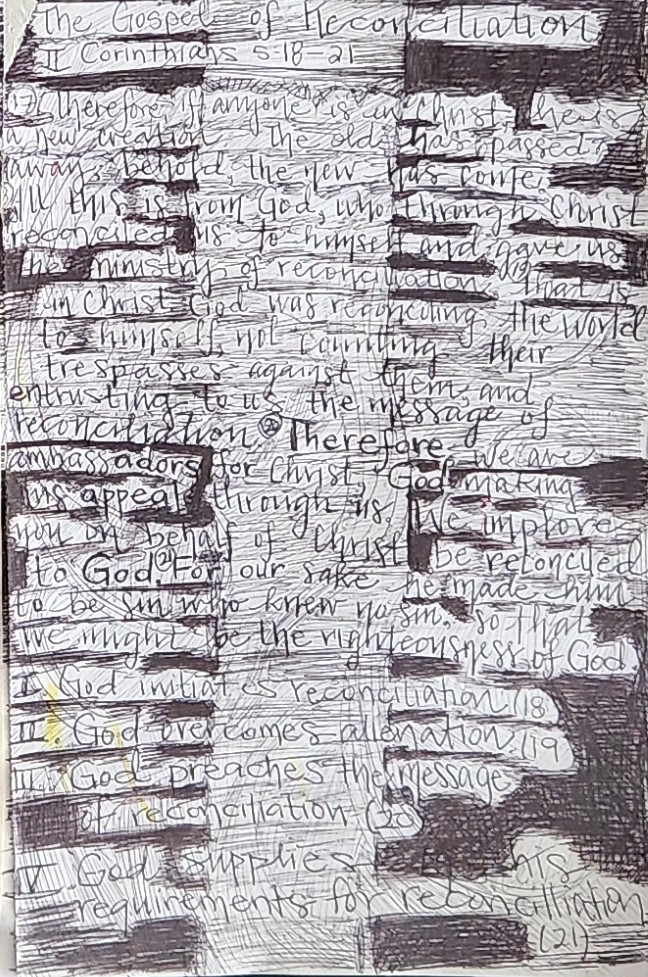 The Gospel of Reconciliation
II Corinthians 5:18-21
(17) Therefore, if anyone is in Christ, he is
a new creation. The old has passed
away; behold, the new has come.
All this is from God, who through Christ
reconciled us to himself and gave us
the ministry of reconciliation (19) That is
in Christ God was reconciling the world
to himself, not counting their
trespasses against them, and
entrusting to us the message of
reconciliation. (20) Therefore, we are
ambassadors for Christ, God making
his appeal through us. We implore
you on behalf of Christ be reconciled
to God. (21) For our sake he made him
to be sin who knew no sin, so that
we might be the righteousness of God.
I. God initiates reconciliation. (18)
II. God overcomes alienation. (19
III. God preaches the message
of reconciliation (20)
V. God supplies his
requirements for reconcilliation
(21)